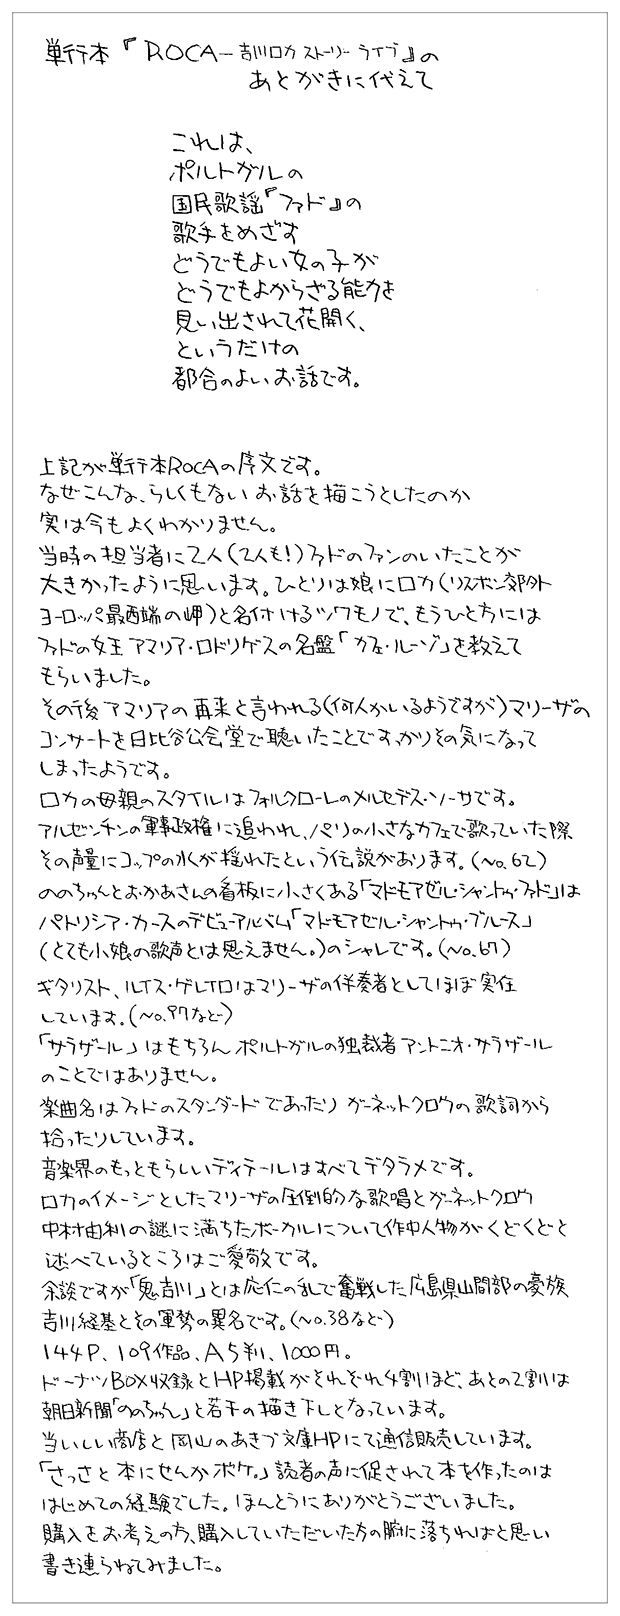 単行本『ROCA－吉川ロカ ストーリー ライブ』の
あとがきに代えて
これは、
ポルトガルの
国民歌謡『ファド』の
歌手をめざす
どうでもよい女の子が
どうでもよからざる能力を
見い出されて花開く、
というだけの
都合のよいお話です。
上記が単行本ROCAの序文です。
なぜこんな、らしくもないお話を描こうとしたのか
実は今もよくわかりません。
当時の担当者に2人(2人も!)ファドのファンのいたことが
大きかったように思います。ひとりは娘にロカ(リスボン郊外
ヨーロッパ最西端の岬)と名付けるツワモノで、もうひと方には
ファドの女王アマリア・ロドリゲスの名盤「カフェ・ルーゾ」を教えて
もらいました。
その後アマリアの再来と言われる(何人かいるようですが)マリーザの
コンサートを日比谷公会堂で聴いたことですっかりその気になって
しまったようです。
ロカの母親のスタイルはフォルクローレのメルセデス・ソーサです。
アルゼンチンの軍事政権に追われ、パリの小さなカフェで歌っていた際
その声量にコップの水が揺れたという伝説があります。(No.62)
ののちゃんとおかあさんの看板に小さくある「マドモアゼル・シャントゥ・ファド」は
パトリシア・カースのデビューアルバム「マドモアゼル・シャントゥ・ブルース」
(とても小娘の歌声とは思えません。)のシャレです。(No.67)
ギタリスト、ルイス・ゲレイロはマリーザの伴奏者としてほぼ実在
しています。(No.97など)
「サラザール」はもちろんポルトガルの独裁者アントニオ・サラザール
のことではありません。
楽曲名はファドのスタンダードであったりガーネットクロウの歌詞から
拾ったりしています。
音楽界のもっともらしいディテールはすべてデタラメです。
ロカのイメージとしたマリーザの圧倒的な歌唱とガーネットクロウ
中村由利の謎に満ちたボーカルについて作中人物がくどくどと
述べているところはご愛敬です。
余談ですが「鬼吉川」とは応仁の乱で奮戦した広島県山間部の豪族
吉川経基とその軍勢の異名です。(No.38など)
144P、109作品、A5判、1000円。
ドーナツBOX収録とHP掲載がそれぞれ4割ほど、あとの2割は
朝日新聞「ののちゃん」と若干の描き下しとなっています。
当いしい商店と岡山のあきづ文庫HPにて通信販売しています。
「さっさと本にせんかボケ。」読者の声に促されて本を作ったのは
はじめての経験でした。ほんとうにありがとうございました。
購入をお考えの方、購入していただいた方の腑に落ちればと思い
書き連らねてみました。